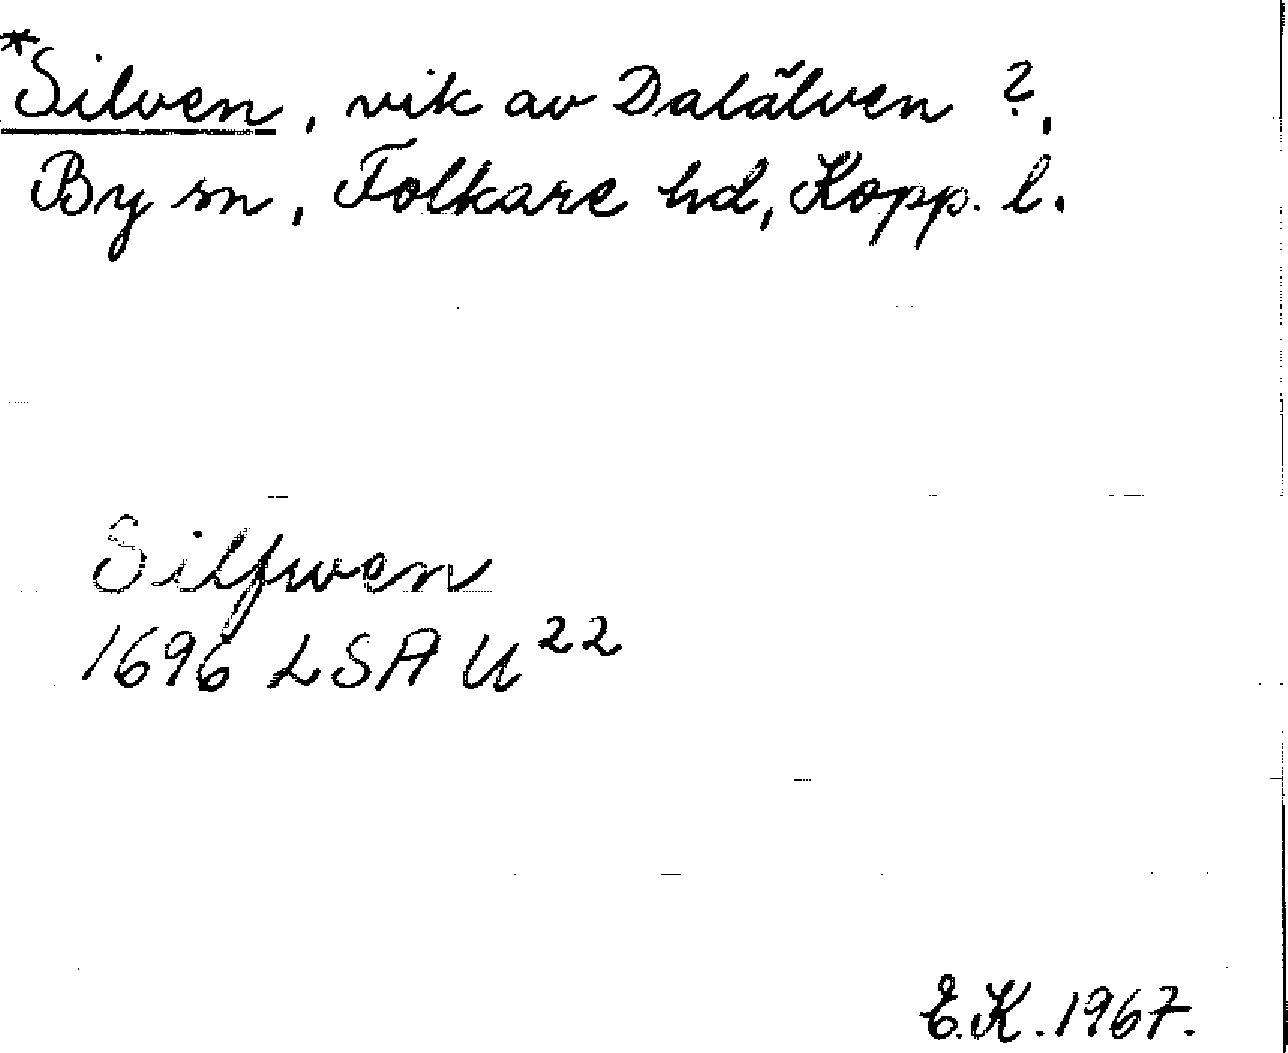 *Silven, vik av Dalälven ?,
By sn, Folkare hd, Kopp. l.
Silfwen
1696 LSA U²²
E.K. 1967.